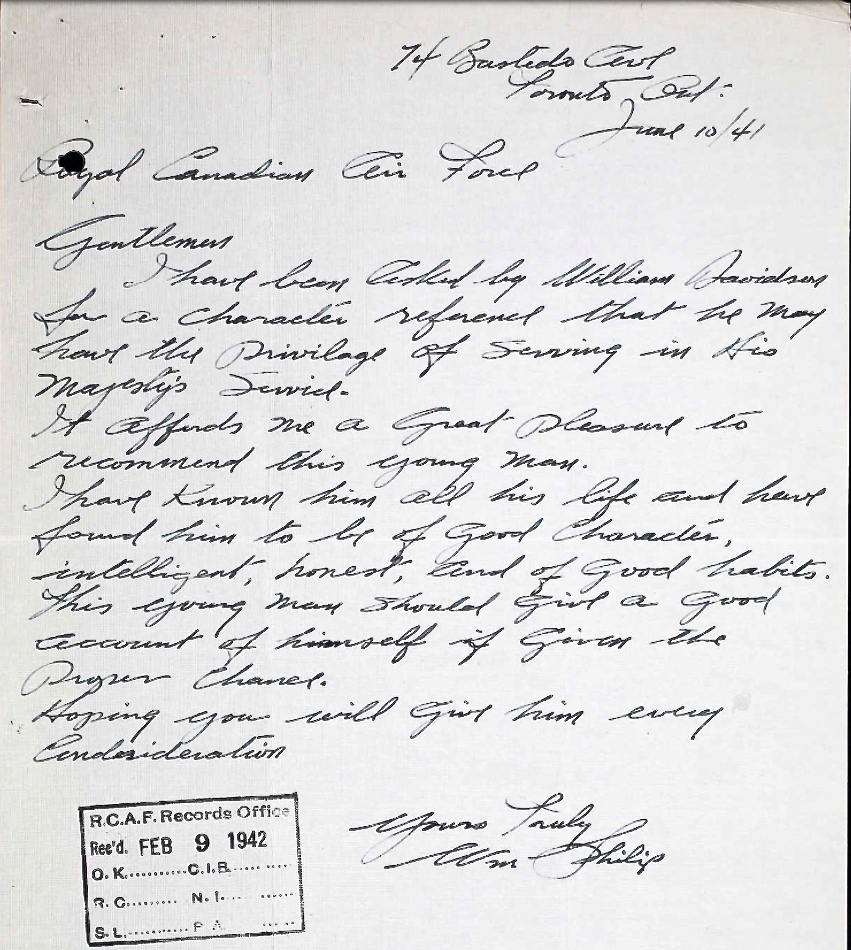 74 Bastedo Ave
Toronto Ont.
June 10/41
Royal Canadian Air Force
Gentlemen
I have been asked by William Davidson
for a character reference that he may
have the privilage of serving in His
Majesty's Service.
It affords me a Great pleasure to
recommend this young man.
I have Known him all his life and have
found him to be of Good Character,
intelligent, honest, and of Good habits.
This young man should Give a Good
account of himself if Given the
Proper Chance.
Hoping you will Give him every
Consideration
Yours Truly
Wm Philip
R.C.A.F. Records Office
Rec'd. FEB 9 1942
O.K..........C.I.B..........
R.C......... N.I..... ......
S.L......... P.A. ......